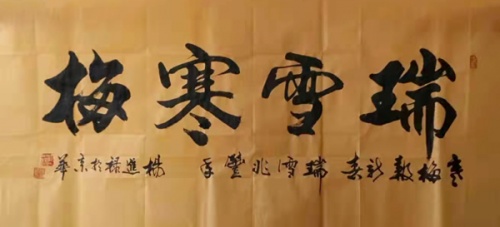 瑞雪寒梅
寒梅報新春 瑞雪兆豐年 楊進禄於京華